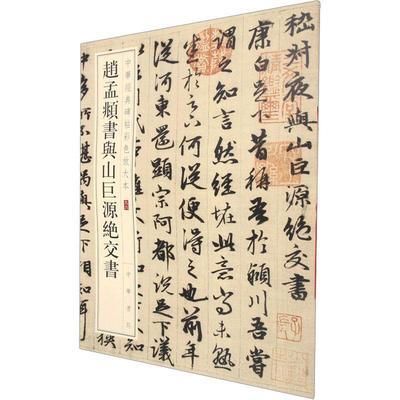 嵇叔夜與山巨源絶交書
康白足下昔稱吾於潁川吾嘗
謂之知言然經怪此意尚未熟
於足下何從便得之也前年
從河東還顯宗阿都說足下議
中華經典碑帖彩色放大本
趙孟頫書與山巨源絶交書
中華書局
不堪偶與足下相知